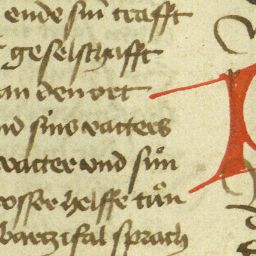 ende sin̄ crafft
geselschafft
an den ort
nd sins vatters
vatter vnd sůn
osser helffe tůn
partzifal sprach